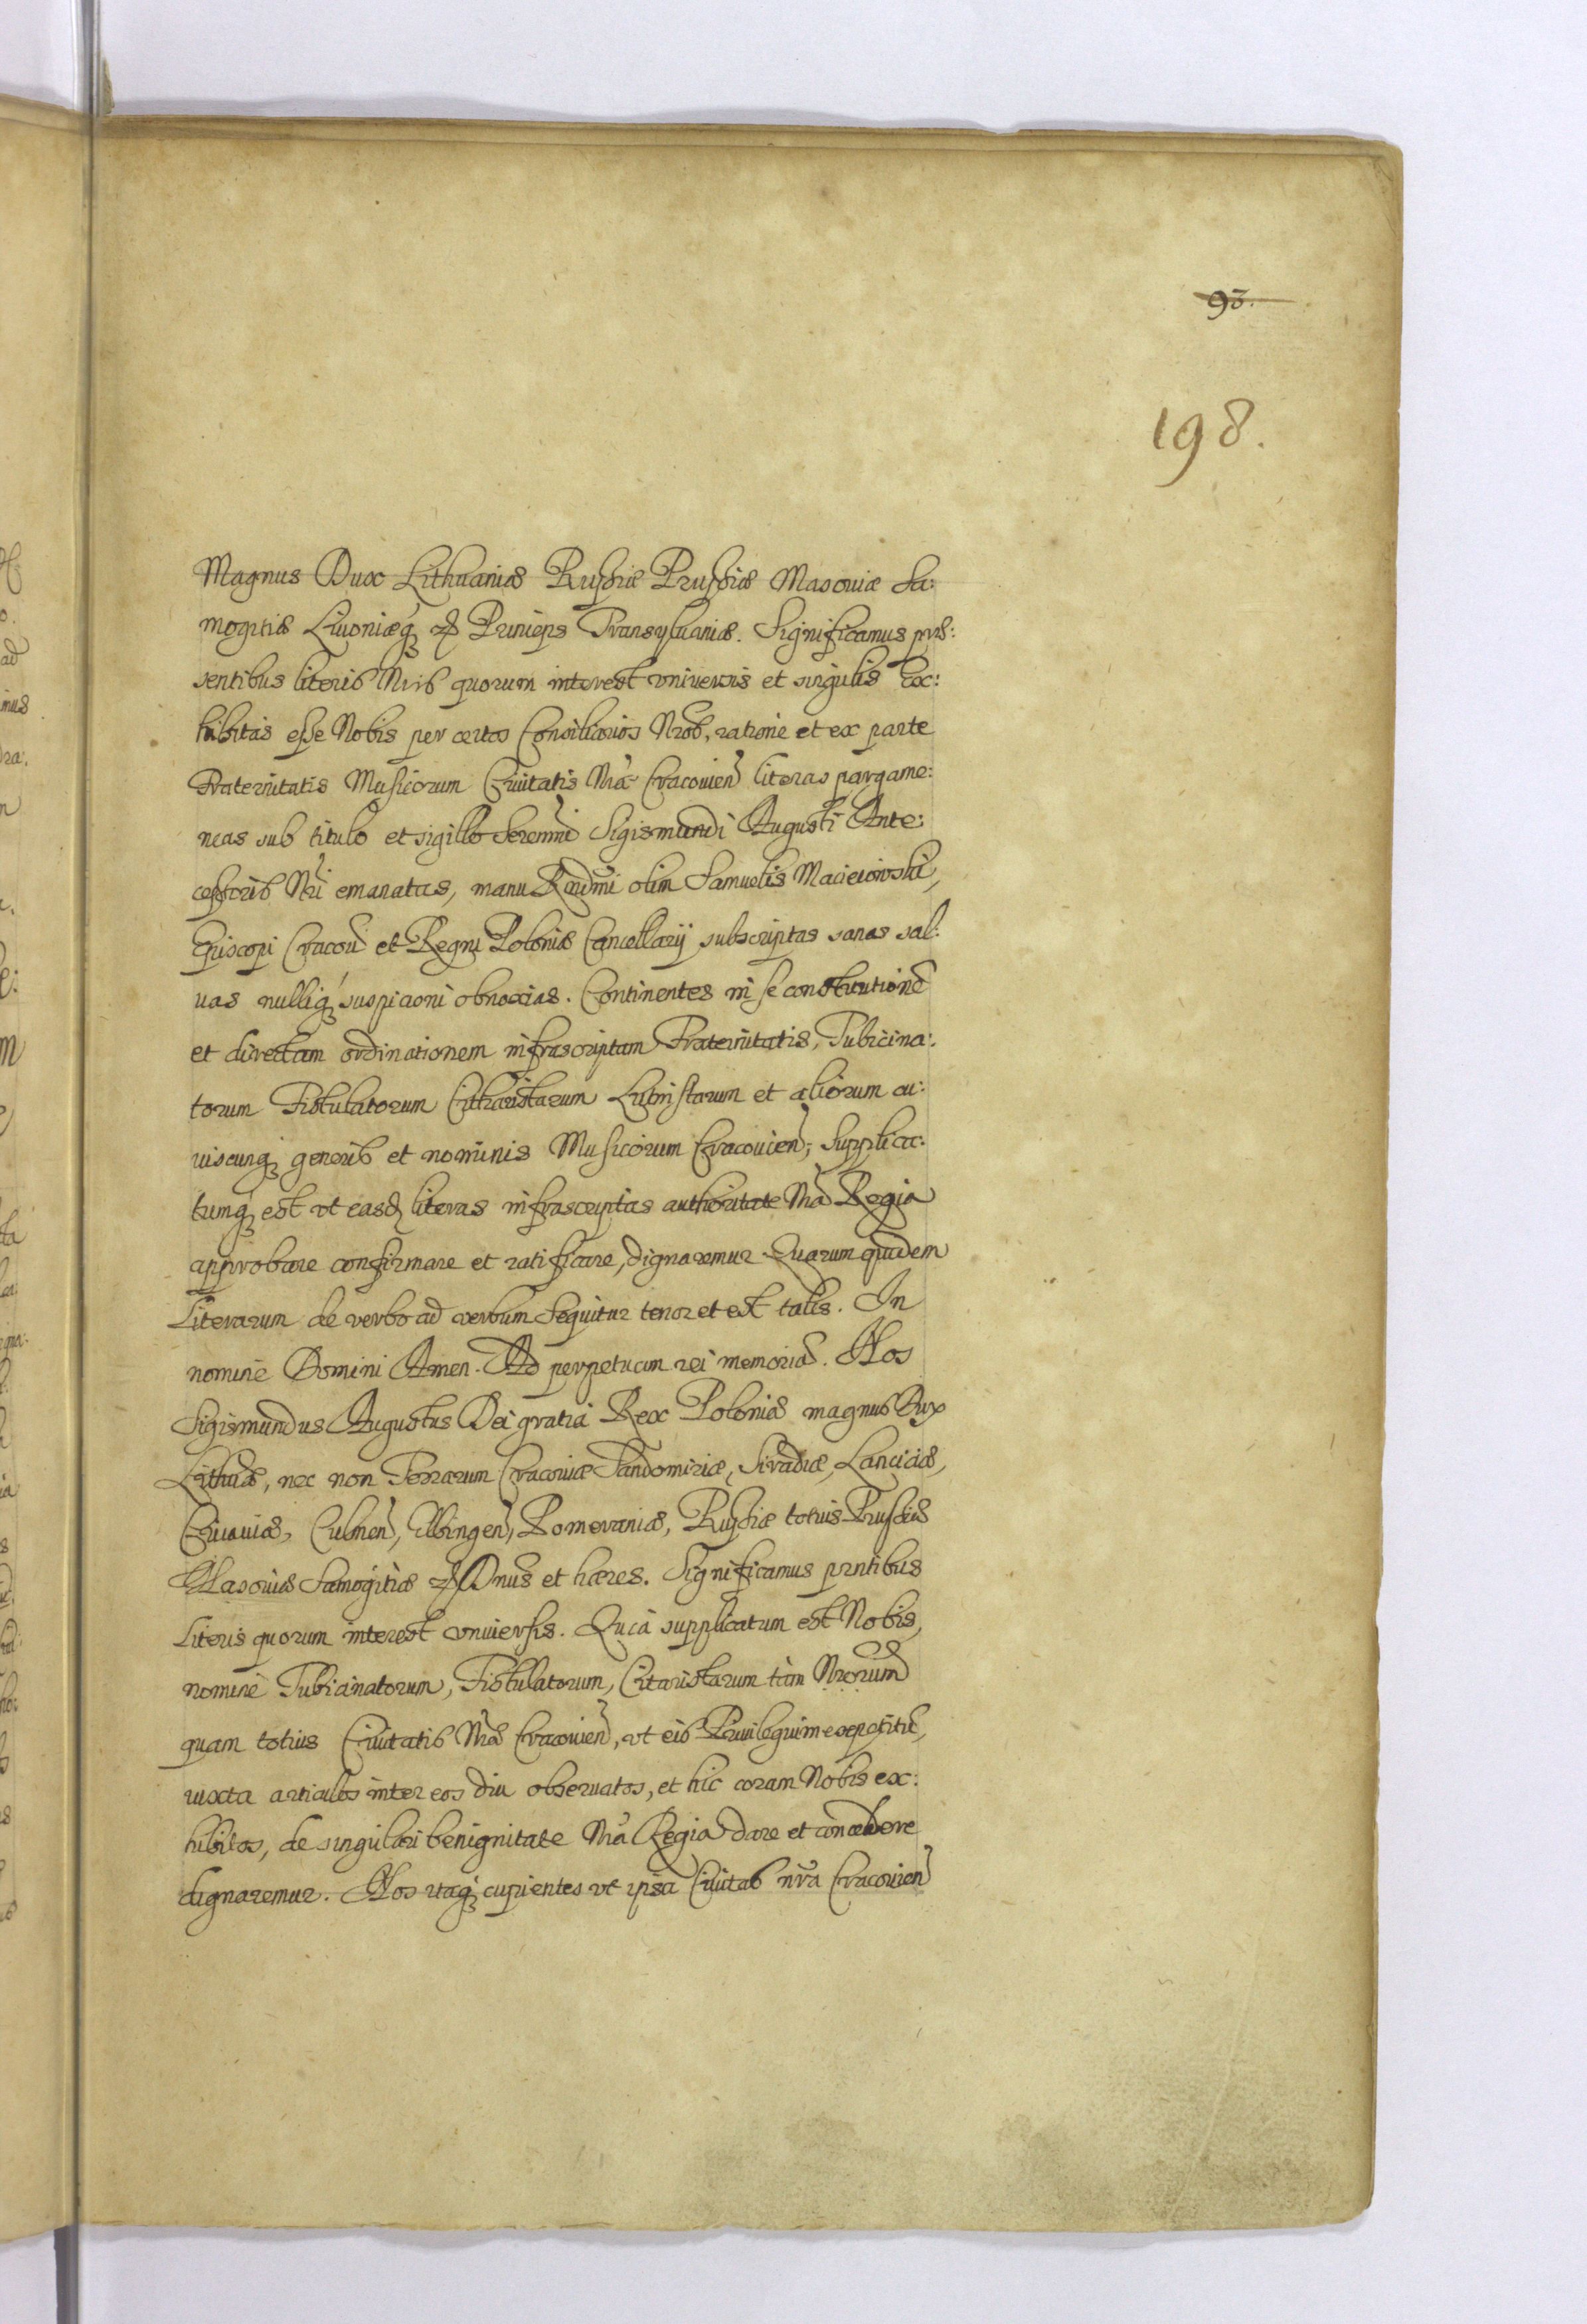 93.
198.
Magnus Dux Lithuaniæ Russiæ Prussiæ Masouiæ Sa:
mogitiæ Liuoniæq̃ & Princeps Transyluaniæ. Significamus præ:
sentibus literis Nris quorum interest vniuersis et singulis Ex:
hibitas esse Nobis per certos Consiliarios Nros, ratione et ex parte
Fraternitatis Musicorum Ciuitatis Nræ Cracouien̄ literas pargame:
neas sub titulo et sigillo Serenmi Sigismundi Augusti Ante:
cessoris Nri emanatas, manu Rndmi olim Samuelis Macieiowski,
Episcopi Cracou et Regni Poloniæ Cancellarij subscriptas sanas sal:
uas nulliq̃ suspicioni obnoxias. Continentes in se constitutionē
et directam ordinationem infrascriptam Fraternitatis, Tubicina:
torum Fistulatorum Citharistarum Lutnistarum et aliorum cu:
iuscunq̃ generis et nominis Musicorum Cracouien̄, Supplica:
tumq̃ est vt easd literas infrascriptas authoritate Nra Regia
approbare confirmare et ratificare, dignaremur. Quarum quidem
Literarum de verbo ad verbum sequitur tenor et est talis. In
nomine Domini Amen. Ad perpetuam rei memoriã. Nos
Sigismundus Augustus Dei gratia Rex Poloniæ magnus Dux
Lithuæ, nec non Terrarum Cracouiæ Sandomiriæ, Siradiæ, Lanciciæ,
Cuiauiæ, Culmen̄, Elbingen̄, Pomeraniæ, Russiæ totius Prussiæ
Masouiæ Samogitiæ & Dnus et hæres. Significamus prntibus
Literis quorum interest vniuersis. Quia supplicatum est Nobis,
nomine Tubicinatorum, Fistulatorum, Citaristarum tam Nrorum
quam totius Ciuitatis Nræ Cracouien̄, vt eis Priuilegium expetitū,
iuxta articulos inter eos diu obseruatos, et hic coram Nobis ex:
hibitos, de singulari benignitate Nra Regia dare et concedere
dignaremur. Nos itaq̃ cupientes vt ipsa Ciuitas nra Cracouien̄